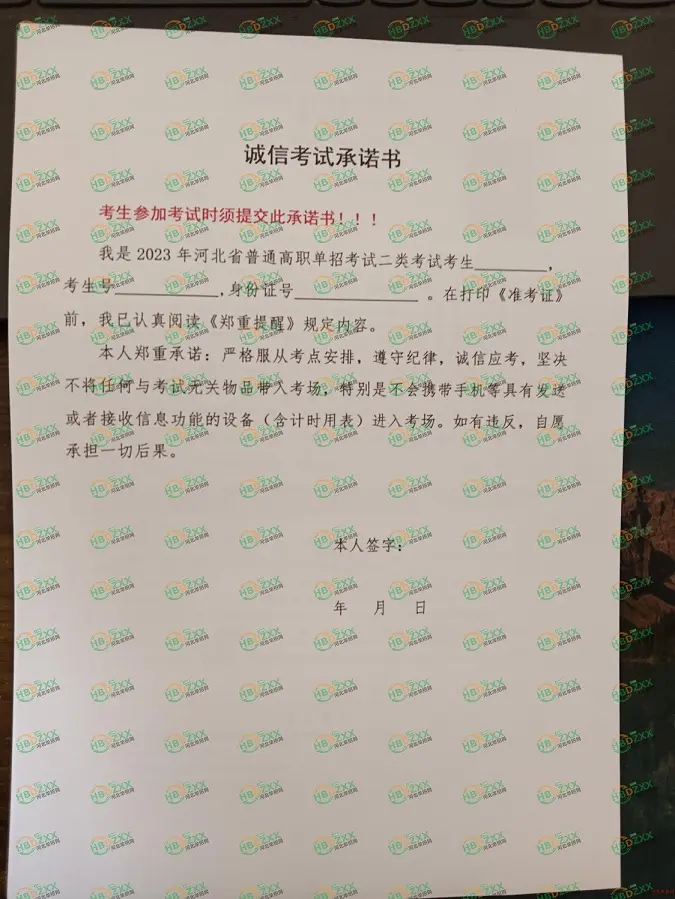 诚信考试承诺书
考生参加考试时须提交此承诺书！！！
我是 2023 年河北省普通高职单招考试二类考试考生________，
考生号____________,身份证号______________ 。在打印《准考证》
前，我已认真阅读《郑重提醒》规定内容。
本人郑重承诺：严格服从考点安排，遵守纪律，诚信应考，坚决
不将任何与考试无关物品带入考场，特别是不会携带手机等具有发送
或者接收信息功能的设备（含计时用表）进入考场。如有违反，自愿
承担一切后果。
本人签字：
年 月 日
HBDZXX
河北单招网